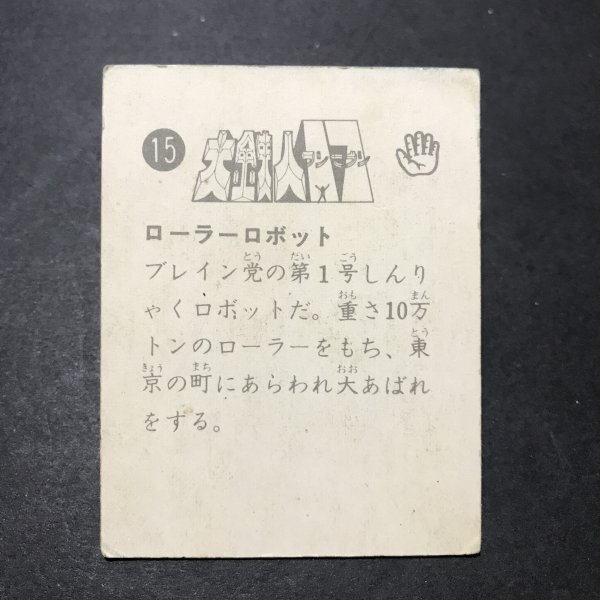 15
大鉄人ワンセブン 17
ローラーロボット
ブレイン党の第1号しんり
ゃくロボットだ。重さ10万
トンのローラーをもち、東
京の町にあらわれ大あばれ
をする。